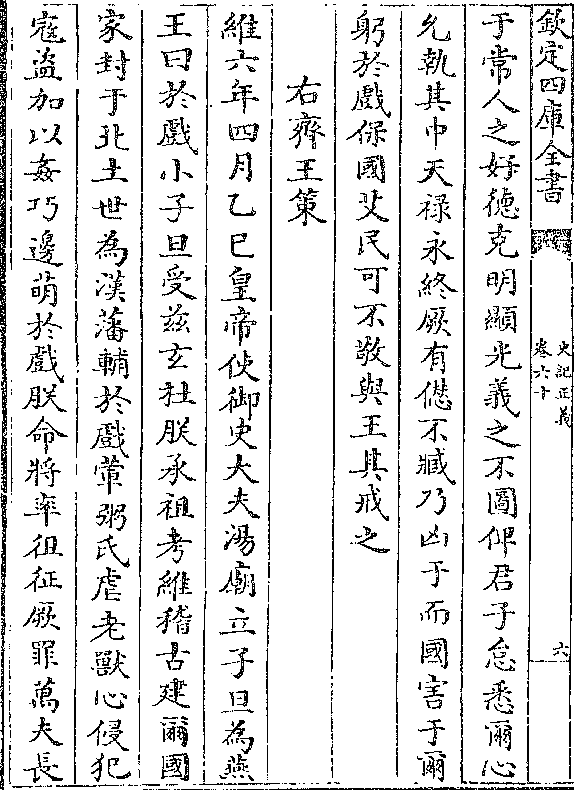 欽定四庫全書
史記正義
卷六十
六
于常人之好德克明顯光義之不圖俾君子怠悉爾心
允執其中天祿永終厥有僁不臧乃凶于而國害于爾
躬於戲保國艾民可不敬與王其戒之
右齊王策
維六年四月乙巳皇帝使御史大夫湯廟立子旦為燕
王曰於戲小子旦受茲玄社朕承祖考維稽古建爾國
家封于北土世為漢藩輔於戲葷粥氏虐老獸心侵犯
寇盜加以姦巧邊萌於戲朕命將率徂征厥罪萬夫長